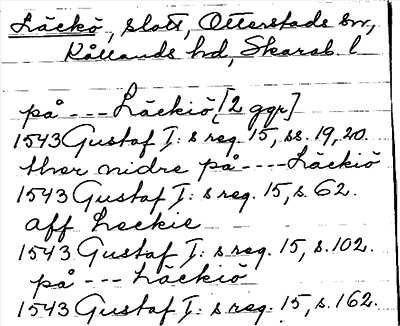 Läckö, slott, Otterstads sn,
Kållands hd, Skarab. l
på --- Läckiö [2 ggr]
1543 Gustaf I: s reg. 15, ss. 19, 20.
ther nidre på ---- Läckiö
1543 Gustaf I: s reg. 15, s. 62.
aff Leckie
1543 Gustaf I: s reg. 15, s. 102.
på --- Läckiö
1543 Gustaf I: s reg. 15, s. 162.